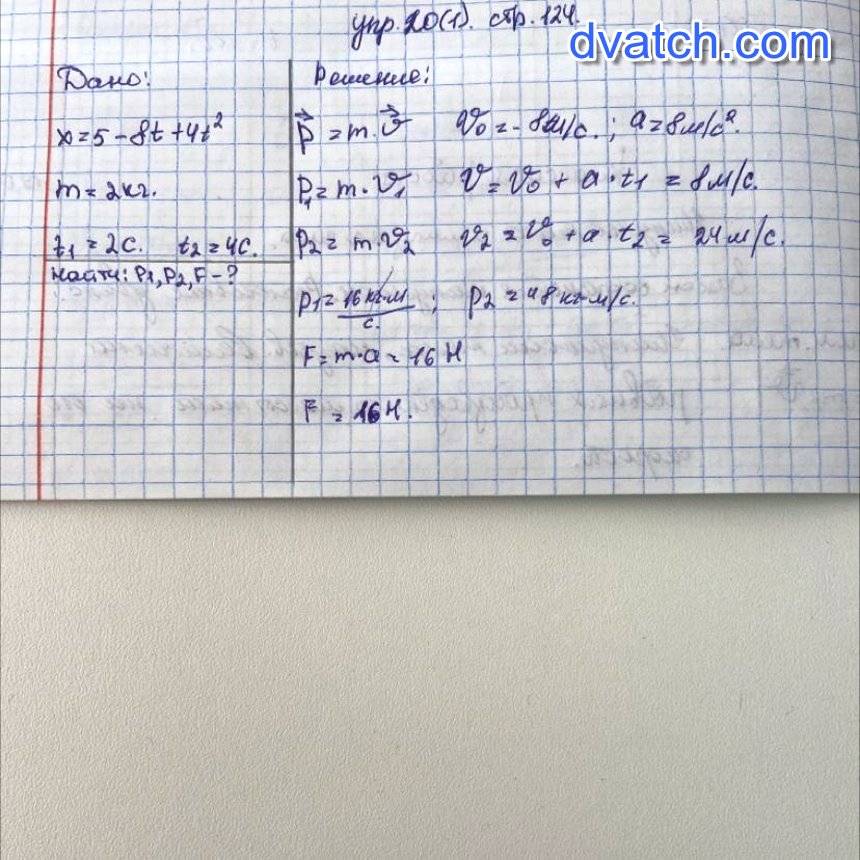 упр. 20(1). стр. 124.
dvatch.com
Дано:
x = 5 - 8t + 4t²
m = 2 кг.
t₁ = 2с. t₂ = 4с.
Найти: P₁, P₂, F - ?
Решение:
p⃗ = m · v⃗ v₀ = - 8м/с. ; a = 8м/с².
P₁ = m · v₁ v = v₀ + a · t₁ = 8м/с.
P₂ = m · v₂ v₂ = v₀ + a · t₂ = 24м/с.
P₁ = 16 кг·м/с. ; P₂ = 48 кг·м/с.
F = m · a = 16 Н
F = 16Н.